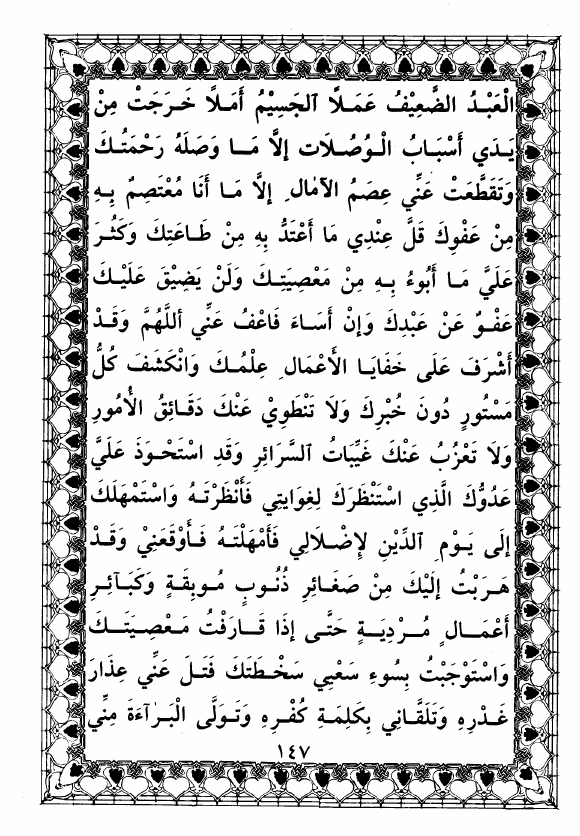 الْعَبْدُ الضَّعِيْفُ عَمَلًا اَلجَسِيْمُ أَمَلًا خَرَجَتْ مِنْ
يَدَي أَسْبَابُ الْوُصُلَات إلاَّ مَا وَصَلَهُ رَحْمَتُكَ
وَتَقَطَّعَتْ عَنِّي عِصَمُ الآمَالِ إلاَّ مَا أَنَا مُعْتَصِمٌ بِهِ
مِنْ عَفْوِكَ قَلَّ عِنْدِي مَا أَعْتَدُّ بِهِ مِنْ طَاعَتِكَ وَكَثُرَ
عَلَيَّ مَا أَبُوءُ بِهِ مِنْ مَعْصِيَتِكَ وَلَنْ يَضِيْقَ عَلَيْكَ
عَفْوٌ عَنْ عَبْدِكَ وَإنْ أَسَاءَ فَاعْفُ عَنِّي أللَّهُمَّ وَقَدْ
أَشْرَفَ عَلَى خَفَايَا الأَعْمَالِ عِلْمُكَ وَانْكَشَفَ كُلُّ
مَسْتُورٍ دُونَ خُبْرِكَ وَلاَ تَنْطَوِيْ عَنْكَ دَقَائِقُ الأُمُورِ
وَلاَ تَعْزُبُ عَنْكَ غَيِّبَاتُ اَلسَّرَائِرِ وَقَدِ اسْتَحْوَذَ عَلَيَّ
عَدُوُّكَ الَّذِي اسْتَنْظَرَكَ لِغِوَايتِي فَأَنْظَرْتَهُ وَاسْتَمْهَلَكَ
إلَى يَوْمِ اَلدِّيْنِ لِإِضْلَالِي فَأَمْهَلْتَهُ فَأَوْقَعَنِيْ وَقَدْ
هَرَبْتُ إلَيْكَ مِنْ صَغَائِرِ ذُنُوبٍ مُوبِقَةٍ وَكَبَآئِرِ
أَعْمَالٍ مُرْدِيَةٍ حَتَّى إذَا قَارَفْتُ مَعْصِيَتَكَ
وَاسْتَوْجَبْتُ بِسُوءِ سَعْيِي سَخْطَتَكَ فَتَلَ عَنِّي عِذَارَ
غَدْرِهِ وَتَلَقَّانِي بِكَلِمَةِ كُفْرِهِ وَتَوَلَّى الْبَرَآءَةَ مِنِّي
١٤٧